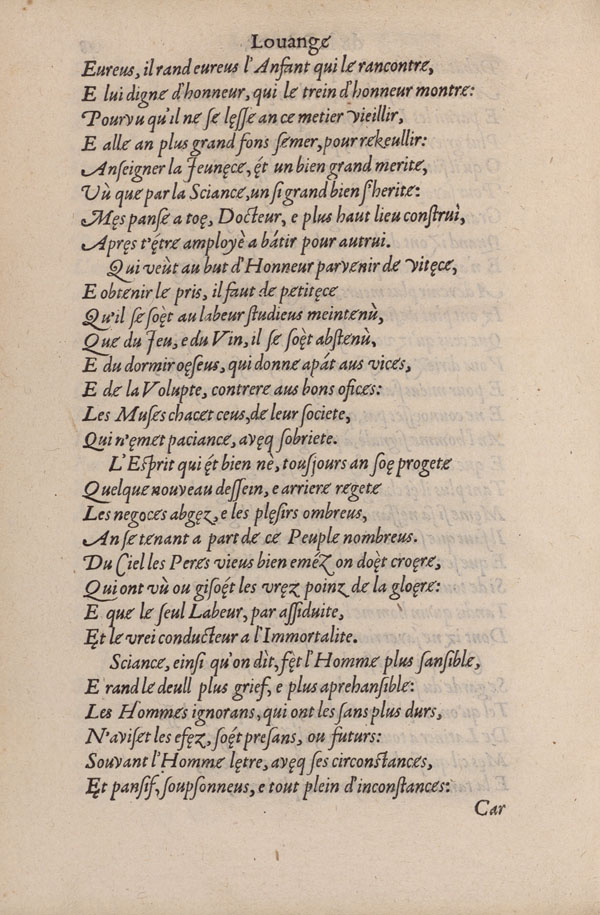 Louange
Eureus, il rand eureus l'Anfant qui le rancontre,
E lui digne d'honneur, qui le trein d'honneur montre:
Pourvu qu'il ne se lęſſe an ce metier vieillir,
E alle an plus grand fons ſemer, pour rekeullir:
Anſeigner la Jeunęce, ę́t un bien grand merite,
Vù que par la Sciance, un ſi grand bien ſ'herite:
Męs panſe a toę, Docteur, e plus haut lieu conſtruì,
Apręs t'ę́tre amployè a bátir pour autrui.
Qui veùt au but d'Honneur parvenir de vitęce,
E obtenir le pris, il faut de petitęce
Qu'il ſe ſoę̀t au labeur ſtudieus meintenù,
Que du Jeu, e du Vin, il ſe ſoę̀t abſtenù,
E du dormir oęſeus, qui donne apát aus vices,
E de la Volupte, contrere aus bons ofices:
Les Muſes chacet ceus, de leur ſociete,
Qui n'ęmet paciance, avęq ſobriete.
L'Eſprit qui ę́t bien nè, touſjours an ſoę progete
Quelque nouveau deſſein, e arriere regete
Les negoces abgęz, e les plęſirs ombreus,
An ſe tenant a part de ce Peuple nombreus.
Du Ciel les Peres vieus bien eméz on doę̀t croęre,
Qui ont vù ou giſoę́t les vręz poinz de la gloęre:
E que le ſeul Labeur, par aſſiduite,
Ęt le vrei conducteur a l'Immortalite.
Sciance, einſi qu'on dìt, fęt l'Homme plus ſanſible,
E rand le deull plus grief, e plus aprehanſible:
Les Hommes ignorans, qui ont les ſans plus durs,
N'aviſet les efęz, ſoę́t preſans, ou futurs:
Souvant l'Homme lętre, avęq ſes circonſtances,
Ęt panſif, ſoupſonneus, e tout plein d'inconſtances:
Car